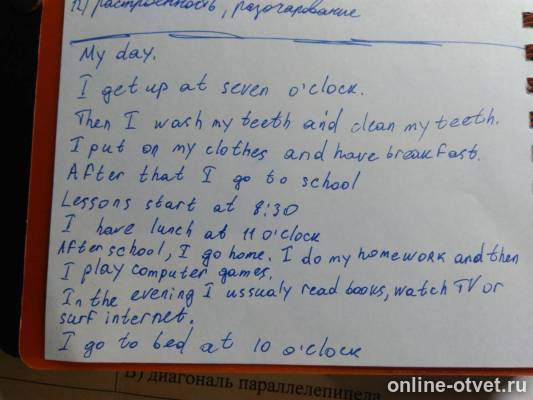 12) растроенность, разочарование
My day.
I get up at seven o'clock.
Then I wash my teeth and clean my teeth.
I put on my clothes and have breakfast.
After that I go to school
Lessons start at 8:30
I have lunch at 11 o'clock
After school, I go home. I do my homework and then
I play computer games.
In the evening I ussualy read books, watch TV or
surf internet.
I go to bed at 10 o'clock
В) диагональ параллелепипеда
online-otvet.ru